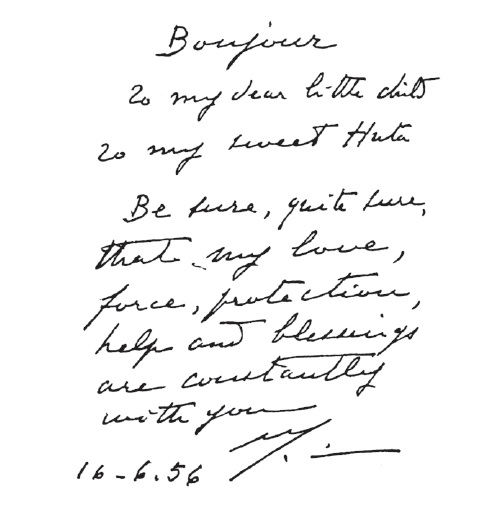 Bonjour
To my dear little child
To my sweet Huta
Be sure, quite sure,
that my love,
force, protection,
help and blessings
are constantly
with you
16-6.56